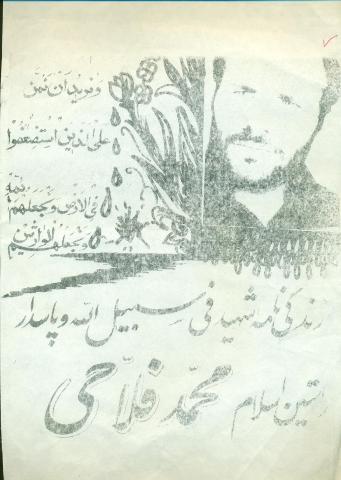 و نرید ان نمن
علی الذین استضعفوا
فی الارض و نجعلهم ائمة
و نجعلهم الوارثین
زندگی نامه شهید فی سبیل الله و پاسدار
راستین اسلام محمد فلاحی